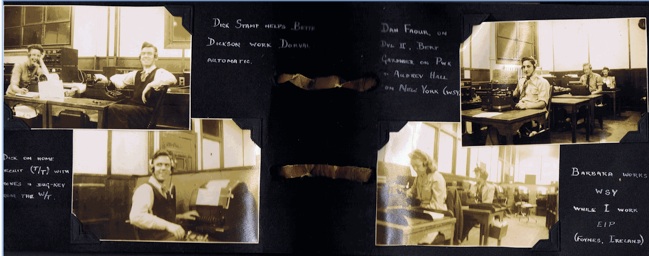 Dick Stamp helps Betty
Dickson work Dorval
automatic.
Dan Fagur, on
Dvl II, Bert
on Pwk
Audrey Hall
on New York (WSY)
Dick on home
circuit (T/T) with
a bug-key
for the W/T
Barbara works
WSY
while I work
EIP
(Foynes, Ireland)